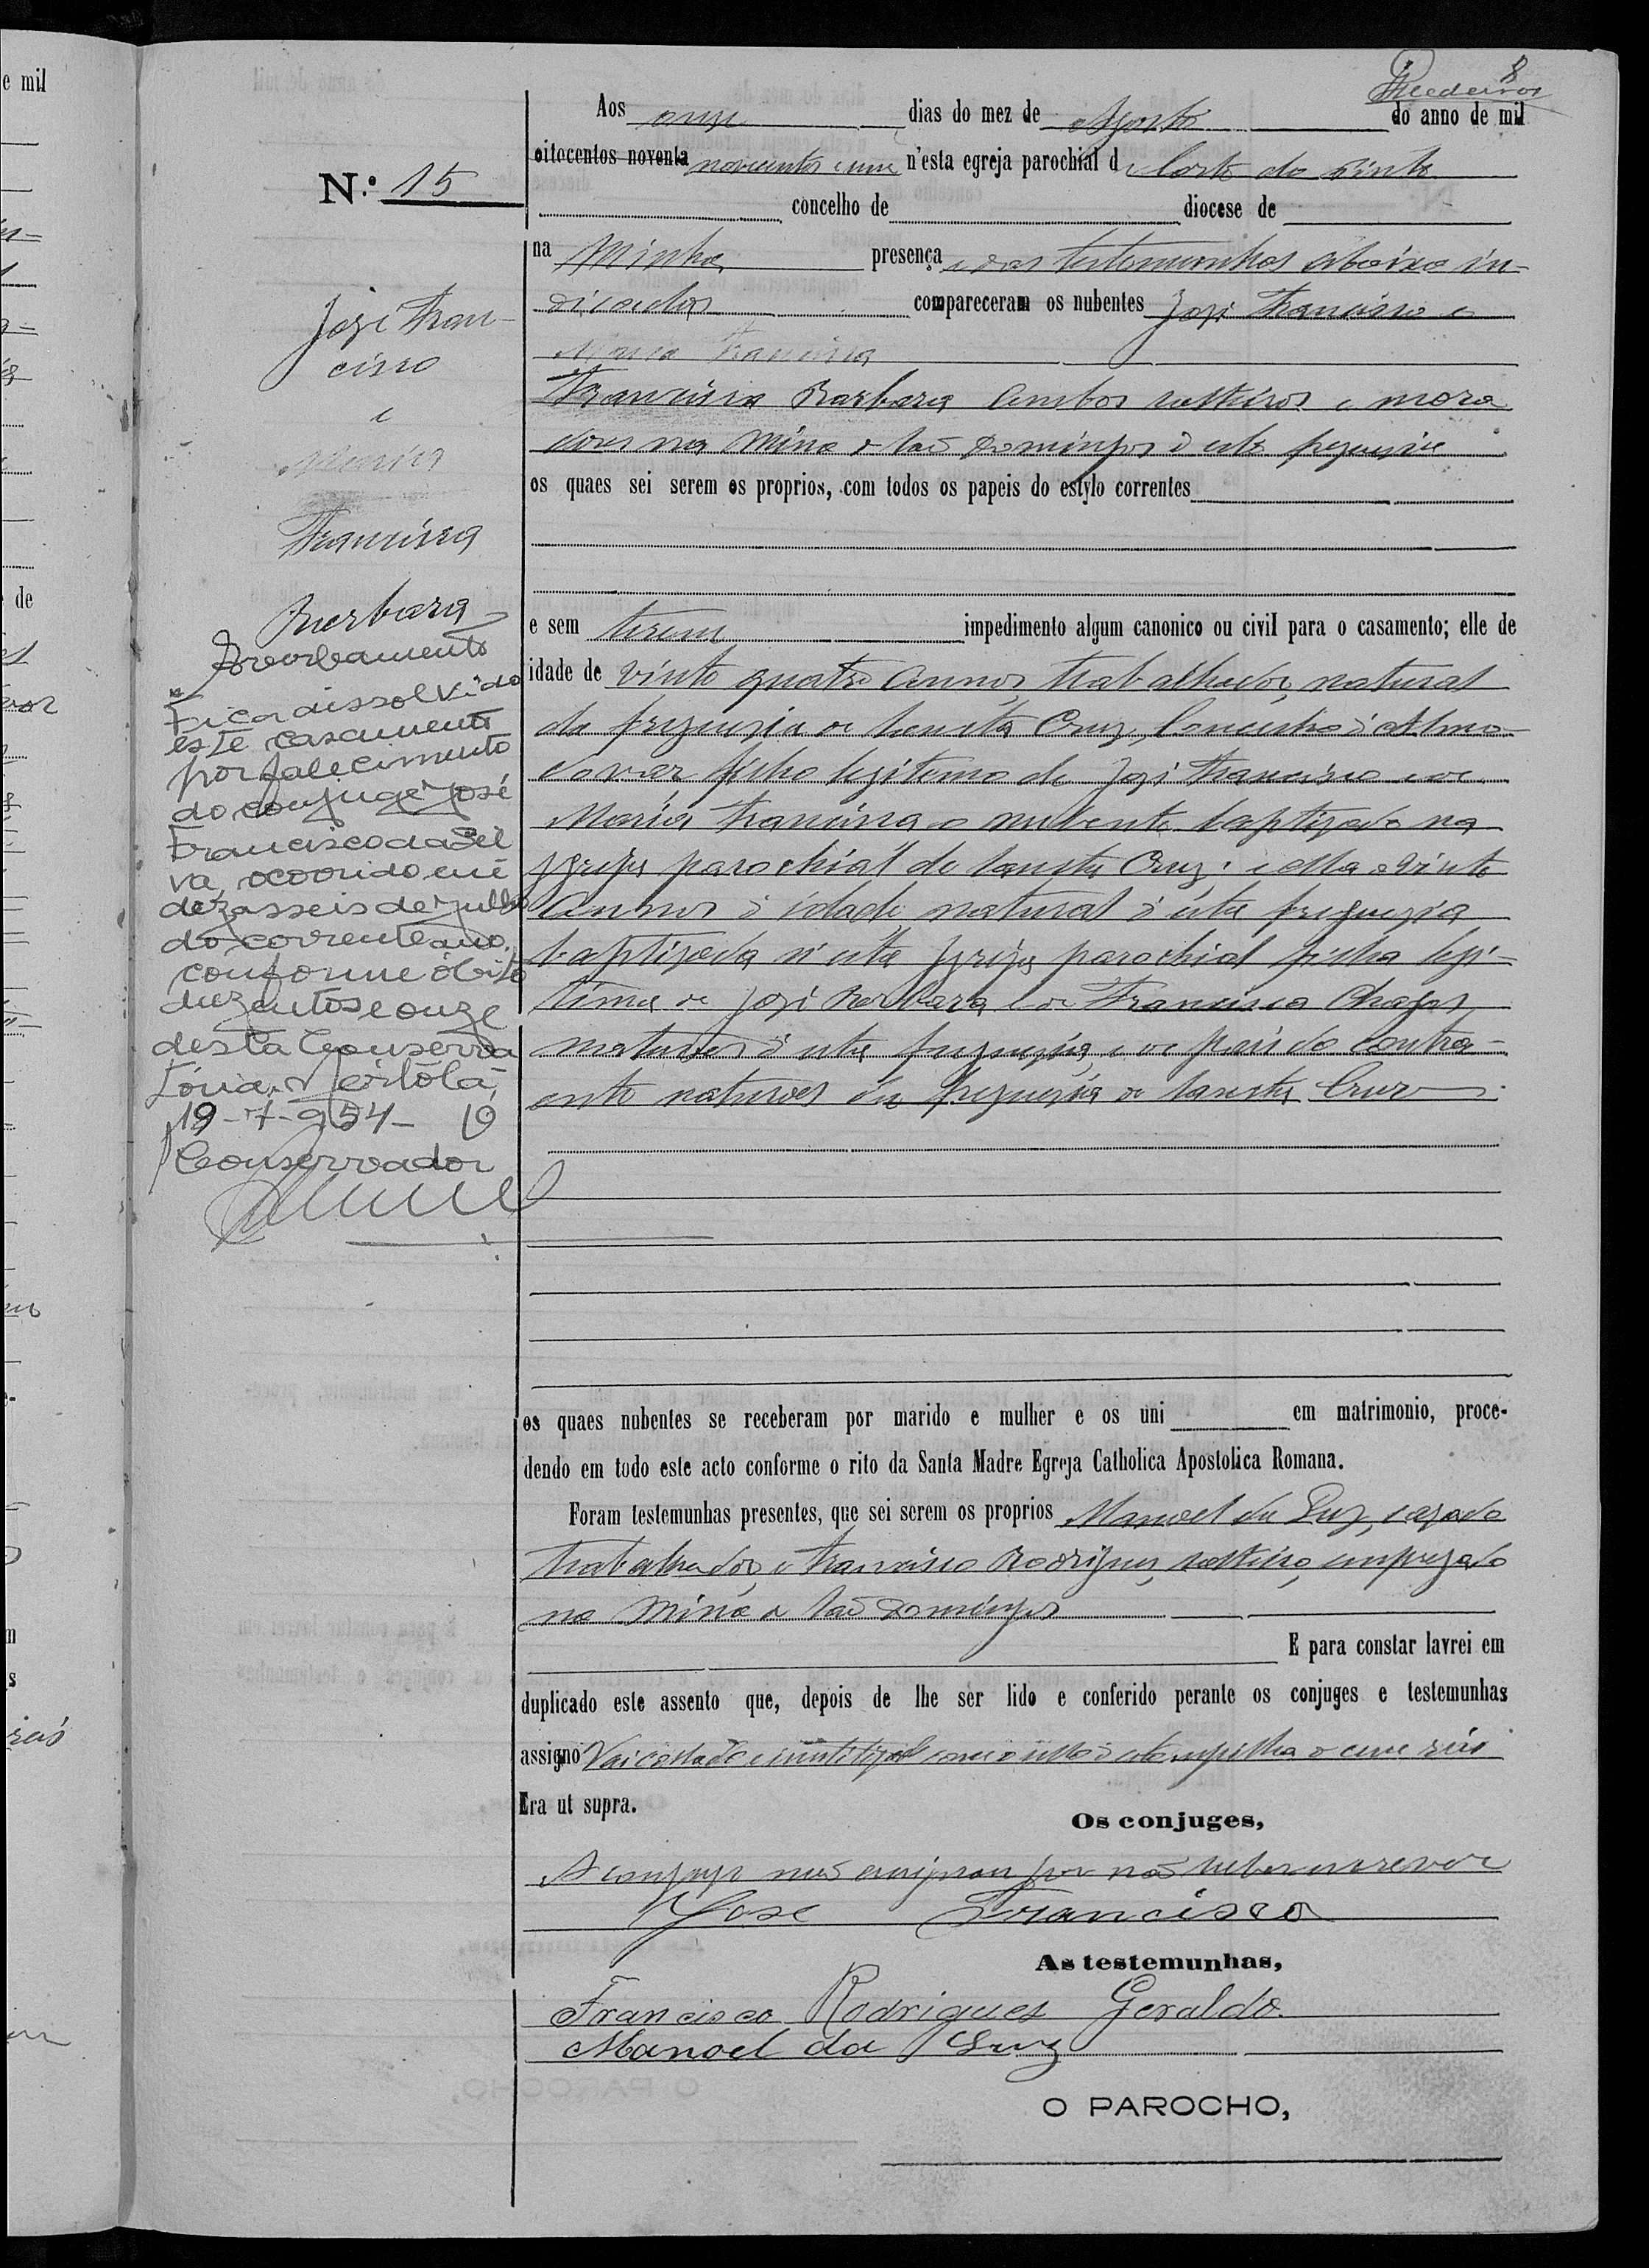 8
Medeiros
Aos onze dias do mez de Agosto do anno de mil
oitocentos noventa novecentos e um n'esta egreja parochial de Corte do Pinto
concelho de diocese de
na Minha presença e das testemunhas abaixo in-
dicadas compareceram os nubentes Jozé Francisco e
Maria Francisca
Francisca Barbara ambos solteiros e mora
dores na Mina de São Domingos d'esta freguezia
os quaes sei serem os proprios, com todos os papeis do estylo correntes
e sem terem impedimento algum canonico ou civil para o casamento; elle de
idade de vinte quatro annos, trabalhador, natural
da freguezia de Santa Cruz, Concelho d'Almo-
dovar filho legitimo de Jozé Francisco e de
Maria Francisca o nubente baptizado na
Igreja parochial de Santa Cruz; e ella de vinte
annos d'idade natural d'esta freguezia
baptizada n'esta Igreja parochial filha legi-
tima de Jozé Barbara e de Francisca Chagas
naturaes d'esta freguezia, e os pais do contra-
ente naturaes da freguezia de Santa Cruz
os quaes nubentes se receberam por marido e mulher e os uni em matrimonio, proce-
dendo em todo este acto conforme o rito da Santa Madre Egreja Catholica Apostolica Romana.
Foram testemunhas presentes, que sei serem os proprios Manoel da Luz, cazado
trabalhador, e Francisco Rodrigues, solteiro, empregado
na Mina de São Domingos
E para constar lavrei em
duplicado este assento que, depois de lhe ser lido e conferido perante os conjuges e testemunhas
assigno Vai collada e inutilizada com o sello d'estampilha de cem reis
Era ut supra.
Os conjuges,
A conjuge não assignou por não saber escrever
Jose Francisco
As testemunhas,
Francisco Rodrigues Geraldo
Manoel da Luz
O PAROCHO,
N.º 15
Joze Fran-
cisco
e
Maria
Francisca
Barbara
Averbamento
Fica dissolvido
este casamento
por falecimento
do conjuge José
Francisco da Sil
va, ocorrido em
dezasseis de Julho
do corrente ano,
conforme óbito
duzentos e onze
desta Conserva
tória. Mertola,
19-7-954- O
Conservador
e mil
de